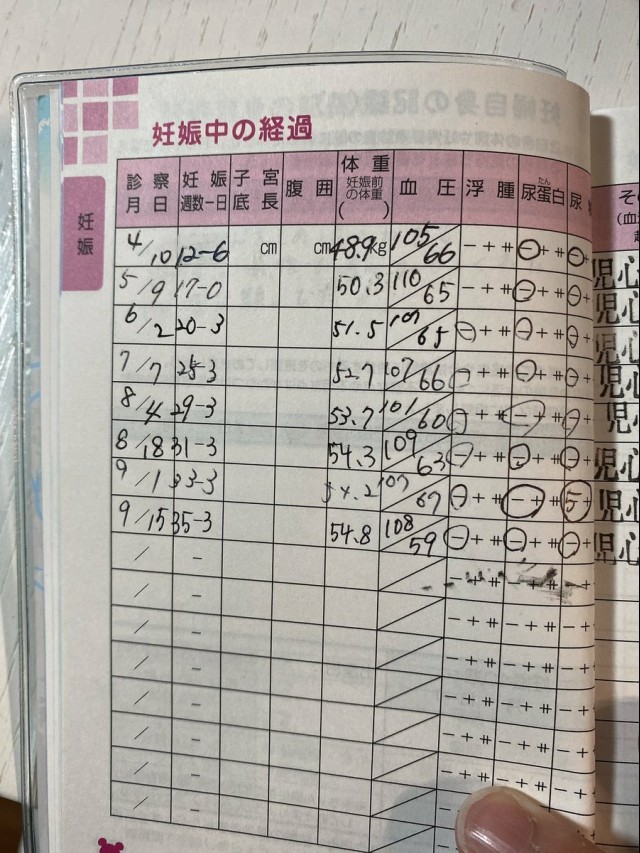 妊娠中の経過
妊娠
診察月日 妊娠週数一日 子宮底長 腹囲 体重 妊娠前の体重 ( ) 血圧 浮腫 尿蛋白 たん 尿 そ (血
4/10 12-6 cm cm 48.9kg 105/66 - + ⧺ - + ⧺ - 児心
5/9 17-0 50.3 110/65 - + ⧺ - + ⧺ - + 児心
6/2 20-3 51.5 107/65 - + ⧺ - + ⧺ - + 児心
7/7 25-3 52.7 107/66 - + ⧺ - + ⧺ - + 児心
8/4 29-3 53.7 101/60 - + ⧺ - + ⧺ - + 児心
8/18 31-3 54.3 109/63 - + ⧺ - + ⧺ - + 児心
9/1 33-3 54.2 107/67 - + ⧺ - + ⧺ + 児心
9/15 35-3 54.8 108/59 - + ⧺ - + ⧺ - + 児心
/ - / - + ⧺ - + ⧺ - +
/ - / - + ⧺ - + ⧺ - +
/ - / - + ⧺ - + ⧺ - +
/ - / - + ⧺ - + ⧺ - +
/ - / - + ⧺ - + ⧺ - +
/ - / - + ⧺ - + ⧺ - +
/ - / - + ⧺ - + ⧺ - +
/ - / - +